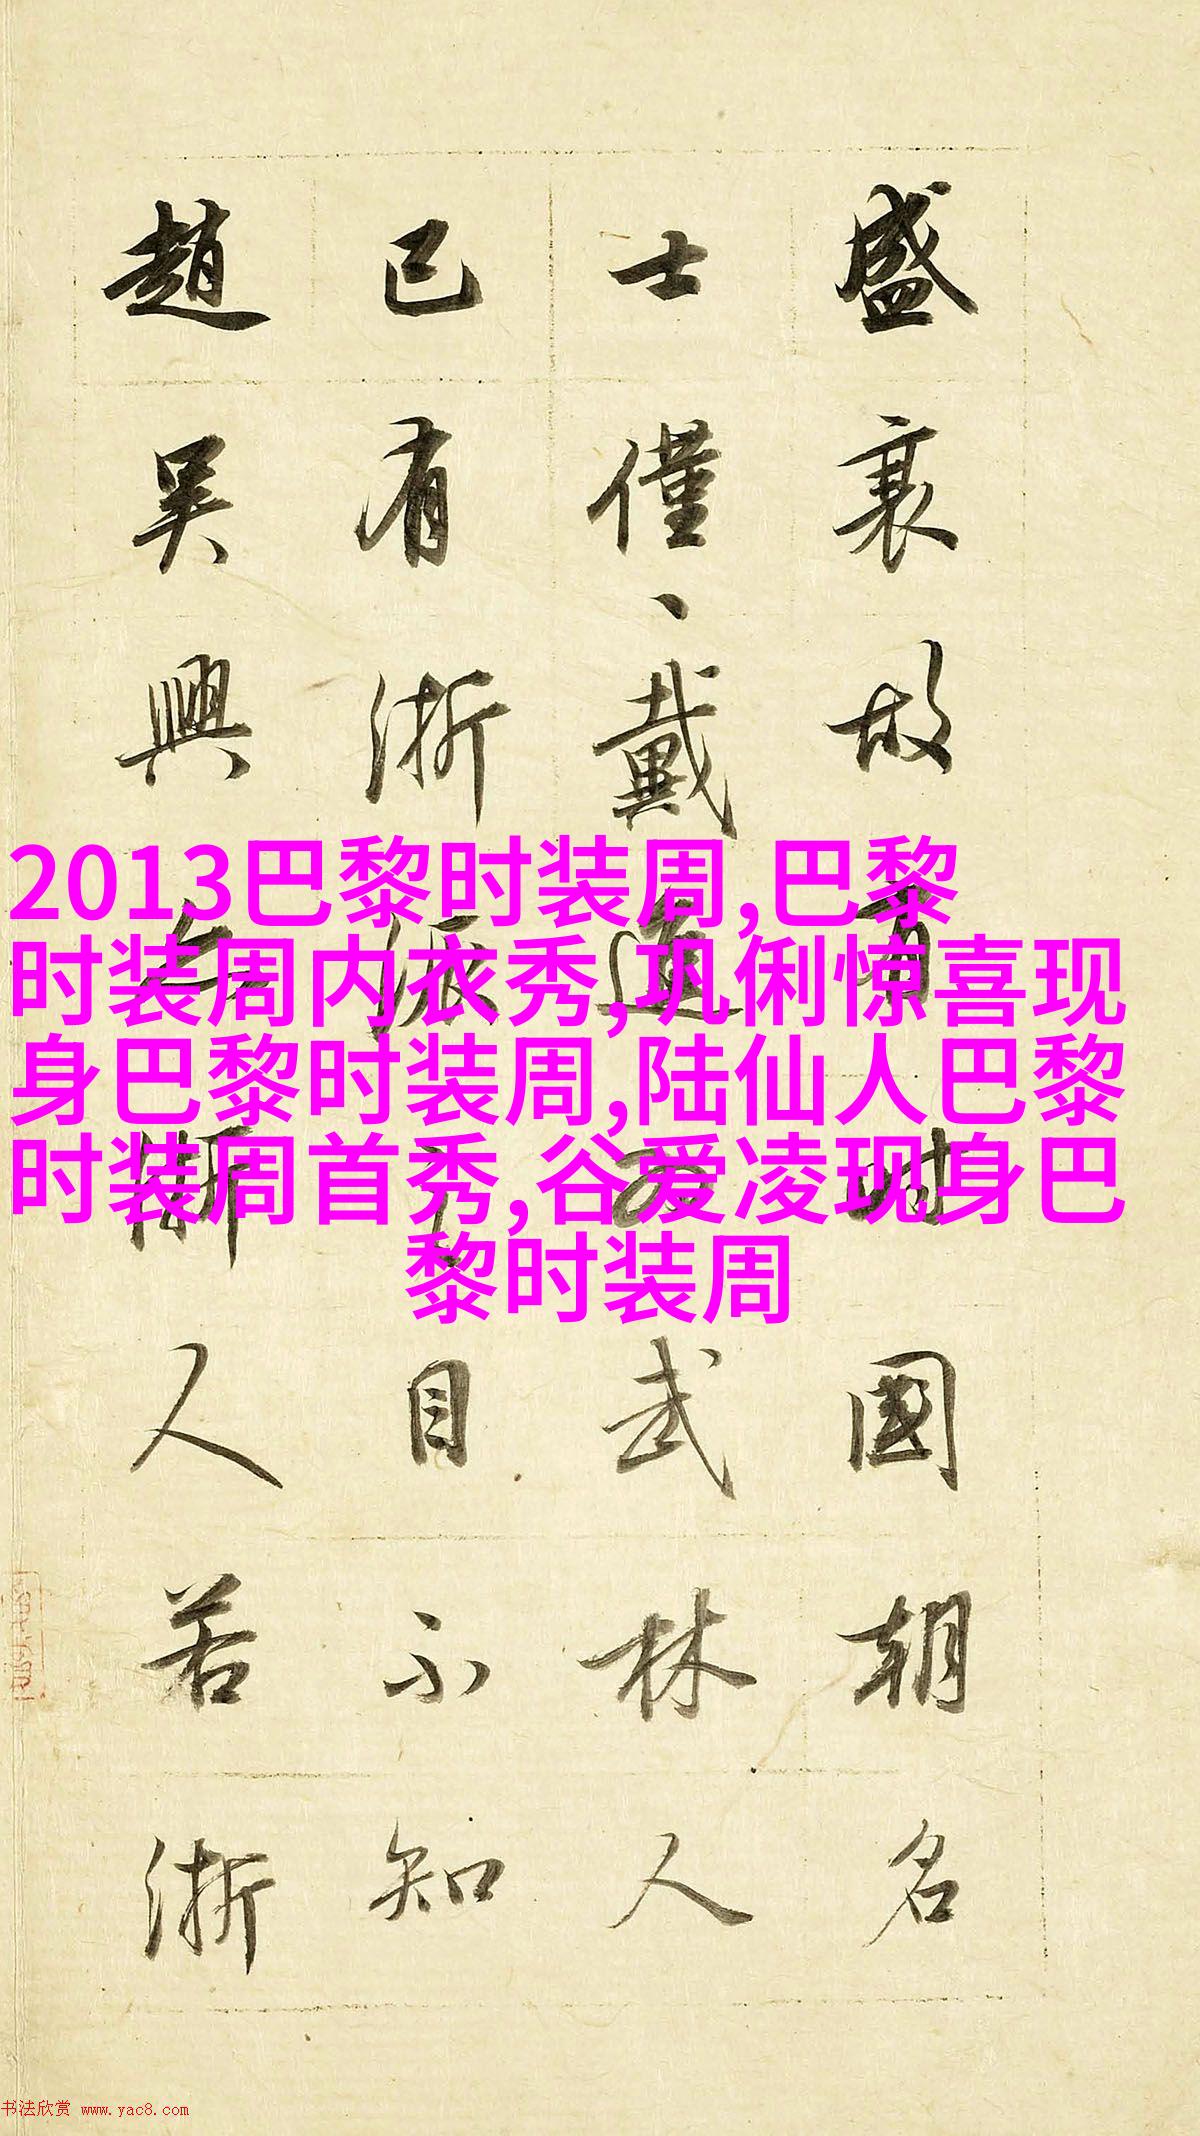 盛衰故有時國朝名
士僅、戴進為武林人
已有浙派之目不知
趙吳興亦浙人若浙
2013巴黎时装周,巴黎
时装周内衣秀,巩俐惊喜现
身巴黎时装周,陆仙人巴黎
时装周首秀,谷爱凌现身巴
黎时装周
书法欣赏 www.yac8.com